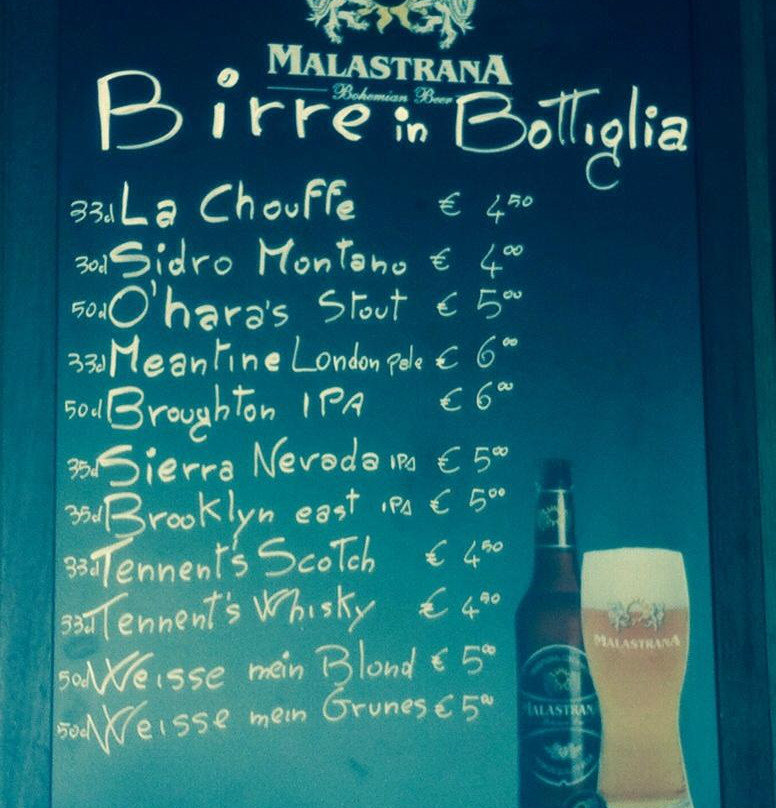 MALASTRANA
Bohemian Beer
Birre in Bottiglia
33cl La Chouffe € 4,50
30cl Sidro Montano € 4,00
50cl O'hara's Stout € 5,00
33cl Meantine London pale € 6,00
50cl Broughton IPA € 6,00
35cl Sierra Nevada IPA € 5,00
35cl Brooklyn east IPA € 5,00
33cl Tennent's Scotch € 4,50
33cl Tennent's Whisky € 4,50
50cl Weisse mein Blond € 5,00
50cl Weisse mein Grunes € 5,00
MALASTRANA
MALASTRANA